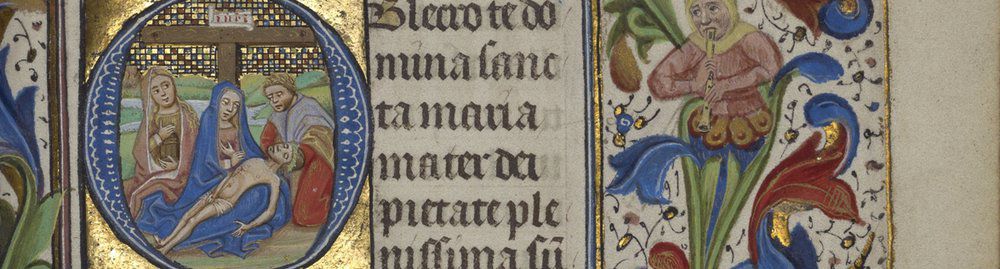 INRI
OBsecro te do
mina sanc
ta maria
mater dei
pietate ple
nissima sū